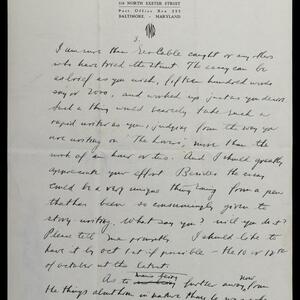 516 NORTH EXETER STREET
Post Office Box 293
BALTIMORE - MARYLAND
3.
I am sure than Geo Cable caught or any others
who have tried the stunt. The essay can be
as brief as you wish, fifteen hundred words
say or 2000, and worked up just as you desire
Such a thing would scarcely take such a
rapid writer as you, judging from the way you
are writing on "The Lovers", more than the
work of an hour or two. And I should greatly
appreciate your effort Besides the essay
could be a very unique thing being from a pen
that has been so consumingly given to
story writing. What say you? will you do it?
Please tell me promptly. I should like to
have it by Oct 1st if possible - the 10 or 12th
of October at the latest.
As to further away, from
the things about him in nature than